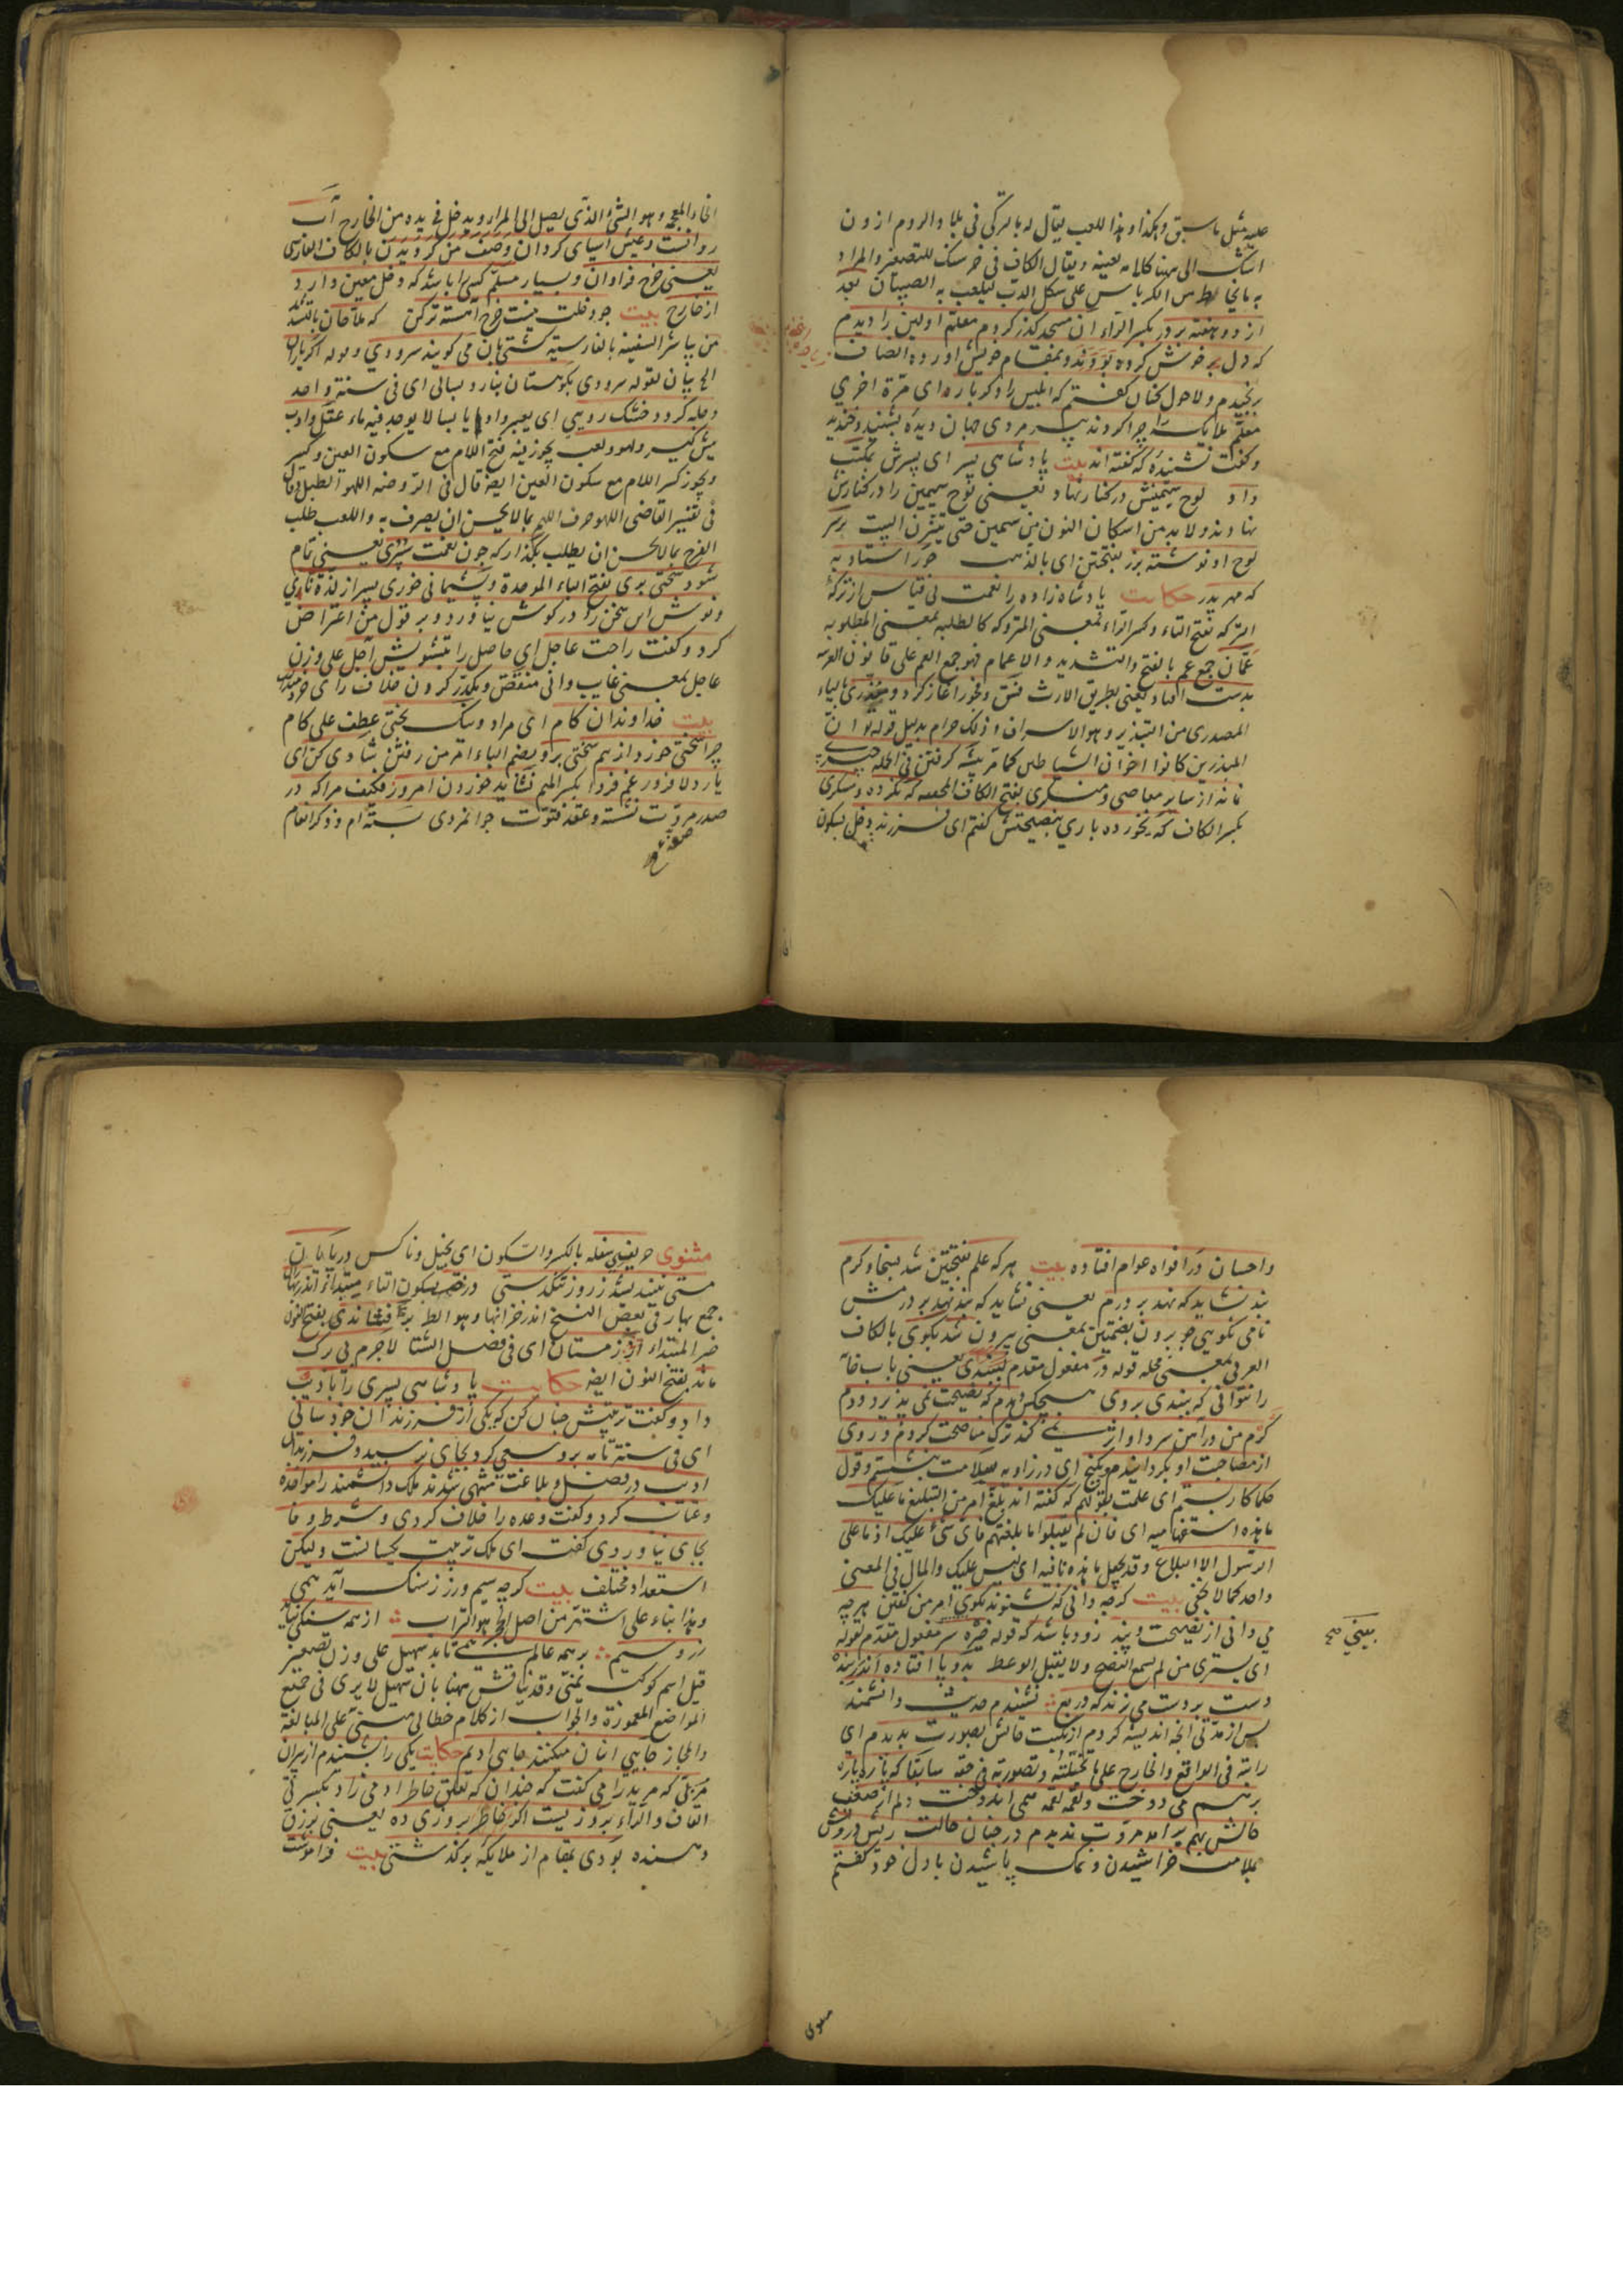 عليه مثل ما سبق وهكذا وهذا اللعب يقال له بالتركى فى بلاد الروم ازون
اشك الى هنا كلامه بعينه ويقال الكاف فى خرسك للتصغير والمراد
به ما يخاط من الكرباس على شكل الدب ليلعب به الصبيان بعد
از دو هفته بر در بكسر الراء آن مسجد كذر كردم معلم اولين را ديدم
كه دل بر خوش كرده بودند وبمقام خويش اورده انصاف
برنجيدم ولا حول كنان كفتم كه ابليس را دكر باره اى مرة اخرى
معلم ملايكه را چرا كردند پير مردى جهان ديده بشنيد وخنديد
وكفت نشنيده كه كفته اند بيت پادشاهى پسر اى پسرش بمكتب
داد لوح سيمينش در كنار نهاد يعنى لوح سيمين را در كنارش
نهادند ولا بد من اسكان النون من سيمين حتى يتزن البيت بر سر
لوح او نوشته بزر بفتحتين اى بالذهب جور استاد به
كه مهر پدر حكايت پادشاه زاده را نعمت بى قياس از تركهٔ
التركه بفتح التاء وكسر الراء بمعنى المتروكه كالطلبه بمعنى المطلوبه
عمان جمع عم بالفتح والتشديد والاعمام فهو جمع العم على قانون العربيه
بدست افتاد يعنى بطريق الارث فسق وفجور اغاز كرد ومبذرى بالياء
المصدرى من التبذير وهو الاسراف وذلك حرام بدليل قوله تع ان
المبذرين كانوا اخوان الشياطين كما مر پيشه كرفتن فى الجمله چيزى
نماند از ساير معاصى ومنكرى بفتح الكاف المخففه كه نكرده ومسكرى
بكسر الكاف كه نخورده بارى بنصيحتش كفتم اى فرزند دخل بسكون
الخاء المعجمه وهو الشئ الذى يصل الى المراء ويدخل فى يده من الخارج آب
روانست وعيش آسياى كردان وصف من كرديدن بالكاف الفارسى
يعنى خرج فراوان وبسيار مسلم كسى را باشد كه دخل معين دارد
از خارج بيت چو دخلت نيست خرج آهسته تر كن كه ملاحان بالتشديد
من يباشر السفينه بالفارسيه كشتى بان مى كويند سرودى وقوله اكر باران
الخ بيان لقوله سرودى بكوهستان نبارد بسالى اى فى سنة واحدة
دجله كردد خشك رودى اى يصير واديا يابسا لا يوجد فيه ماء عقل وادب
پيش كير ولهو ولعب يجوز فيه فتح اللام مع سكون العين وكسر
ويجوز كسر اللام مع سكون العين ايضا قال فى الروضه اللهو الطبل وقال
فى تفسير القاضى اللهو صرف الهم بما لا يحسن ان يصرف به واللعب طلب
الفرح بما لا يحسن ان يطلب بگذار كه چون نعمت سپرى يعنى تمام
شود سختى برى بفتح الباء الموحدة وپشيمانى خورى پسر از لذة ناى
ونوش اين سخن را در كوش نياورد وبر قول من اعتراض
كرد وكفت راحت عاجل اى حاصل را بتشويش آجل على وزن
عاجل بمعنى غايب وآنى منغص ومكدر كردن خلاف راى خردمندانست
بيت خداوندان كام اى مراد ونيك بختى عطف على كام
چرا سختى خورد از بيم سختى برو بضم الباء امر من رفتن شادى كن اى
يار دلافروز غم فردا بكسر الميم نشايد خوردن امروز فكيف مرا كه در
صدر مروت نشسته وعقد فتوت جوانمردى بسته ام وذكر انعام
واحسان در افواه عوام افتاده بيت هر كه علم بفتحتين شد بسخا وكرم
بند نشايد كه نهد بر درم يعنى نشايد كه بند نهد بر درمش
نام نكويى چو برون بضمتين بمعنى بيرون شد بكوى بالكاف
العربى بمعنى محله قوله در مفعول مقدم لببندى يعنى باب خانه
را نتوانى كه ببندى بروى هيچكس ديدم كه نصيحت نمى پذيرد ودم
كرم من در آهن سرد او اثر نمى كند ترك مناصحت كردم وروى
از مصاحبت او بكردانيدم وبكنج اى در زاويه سلامت بنشستم وقول
حكما كار بستم اى عملت بقولهم كه كفته اند بلغ امر من التبليغ ما عليك
ما هذه استفهاميه اى فان لم يقبلوا ما بلغتهم فاى شئ عليك اذ ما على
الرسول الا البلاغ وقد يجعل ما هذه نافيه اى ليس عليك والمآل فى المعنى
واحد كما لا يخفى بيت كرچه دانى كه نشنوند بكوى امر من كفتن هرچه
مى دانى از نصيحت وپند زود باشد كه قوله خيره سر مفعول مقدم لقوله
اى يسترى من لم يسمع النصح ولا يقبل الوعظ بدو پا افتاده اندر بند
دست بر دست مى زند كه دريغ نشنيدم حديث دانشمند
پس از مدتى آنچه انديشه كردم از نكبت حالش بصورت بديدم اى
رايته فى الواقع والخارج على ما تخيلته وتصورته فى حقه سابقا كه پاره پاره
برهم مى دوخت ولقمه لقمه همى اندوخت دلم از ضعف
حالش بهم برآمد مروت نديدم در چنان حالت ريش درويش
بملامت خراشيدن ونمك پاشيدن با دل خود كفتم
بعينى صح
مثنوى
مثنوى حريف سفله بالكسر والسكون اى بخيل وناكس در پايان
مستى نينديشد ز روز تنكدستى درخت بسكون التاء مبتداء اندر بهاران
جمع بهار فى بعض النسخ اندر خزانها وهو انسب بر فشاندى بفتح النون
خبر المبتداء از زمستان اى فى فصل الشتا لاجرم بى برك
ماند بفتح النون ايضا حكايت پادشاهى پسرى را بادب
داد وكفت تربيتش چنان كن كه يكى از فرزندان خود سالى
اى فى سنة تامه برو سعى كرد بجاى نرسيد وفرزندان
اديب در فضل وبلاغت منتهى شدند ملك دانشمند را مواخذه
وعتاب كرد وكفت وعده را خلاف كردى وشرط وفا
بجاى نياوردى كفت اى ملك تربيت يكسانست وليكن
استعداد مختلف بيت كرچه سيم وزر ز سنك آيد همى
وهذا بناء على اشتهر من اصل الحجر هو التراب از همه سنكى نيايد
زر وسيم بر همه عالم همى تابد سهيل على وزن تصغير
قيل اسم كوكب يمنى وقد يناقش ههنا بان سهيل لا يرى فى جميع
المواضع المعمورة والجواب از كلام خطابى مبنى على المبالغة
والمجاز جايى انبان ميكند جايى اديم حكايت يكى را شنيدم از پيران
مربى كه مريد را مى كفت كه چندان كه تعلق خاطر ادمى زاد بكسر
القاف والراء بروزيست اكر خاطر بروزى ده يعنى برزق
دهنده بودى بمقام از ملايكه بركذشتى بيت فراموشت